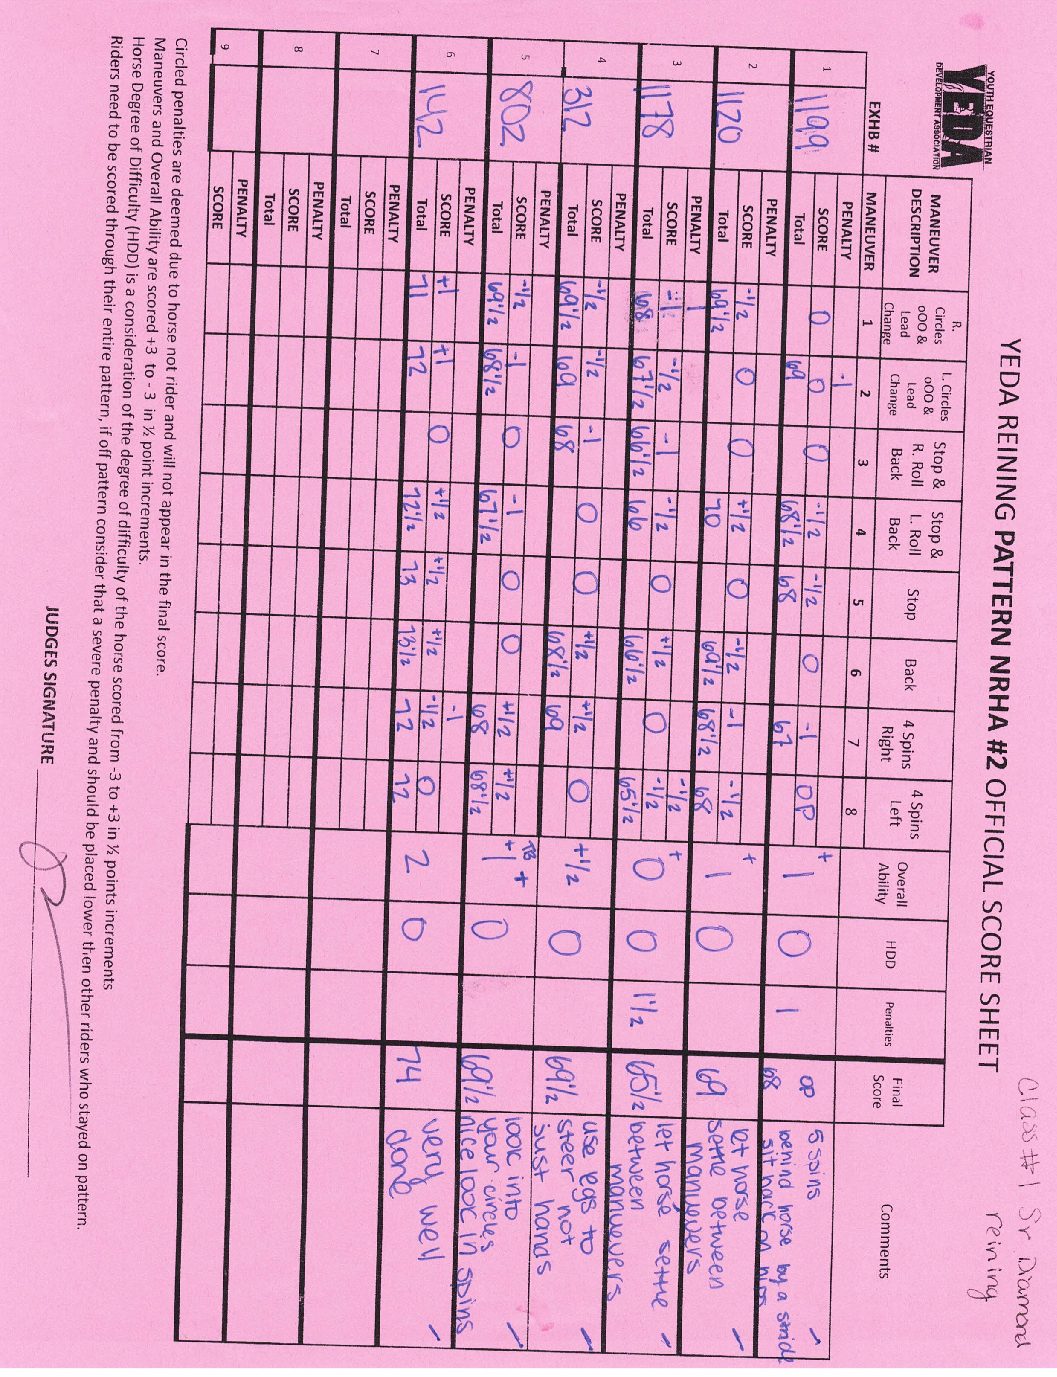 Class #1 Sr Diamond
reining
YEDA REINING PATTERN NRHA #2 OFFICIAL SCORE SHEET
YOUTH EQUESTRIAN
YEDA
DEVELOPMENT ASSOCIATION
MANEUVER DESCRIPTION R. Circles oOO & Lead Change L. Circles oOO & Lead Change Stop & R. Roll Back Stop & L. Roll Back Stop Back 4 Spins Right 4 Spins Left Overall Ability HDD Penalties Final Score Comments
EXHB # MANEUVER 1 2 3 4 5 6 7 8
1 1199
PENALTY -1
SCORE 0 0 0 -1/2 -1/2 0 -1 OP + 1 0 1 OP 5 spins
Total 69 68 1/2 68 67 68 behind horse by a stride sit back on hips
2 1120
PENALTY
SCORE -1/2 0 0 +1/2 0 -1/2 -1 -1/2 + 1 0 69 let horse
Total 69 1/2 70 69 1/2 68 1/2 68 settle between manuevers
3 1178
PENALTY 1 -1/2
SCORE -1 -1/2 -1 -1/2 0 +1/2 0 -1/2 + 0 0 1 1/2 65 1/2 let horse settle
Total 68 67 1/2 66 1/2 66 66 1/2 65 1/2 between manuevers
4 312
PENALTY
SCORE -1/2 -1/2 -1 0 0 +1/2 +1/2 0 +1/2 0 69 1/2 use legs to
Total 69 1/2 69 68 68 1/2 69 steer not just hands
5 802
PENALTY TB +
SCORE -1/2 -1 0 -1 0 0 +1/2 +1/2 +1 0 69 1/2 look into
Total 69 1/2 68 1/2 67 1/2 68 68 1/2 your circles nice look in spins
6 142
PENALTY -1
SCORE +1 +1 0 +1/2 +1/2 +1/2 -1/2 0 2 0 74 very well
Total 71 72 72 1/2 73 73 1/2 72 72 done
7
PENALTY
SCORE
Total
8
PENALTY
SCORE
Total
9
PENALTY
SCORE
Circled penalties are deemed due to horse not rider and will not appear in the final score.
Maneuvers and Overall Ability are scored +3 to - 3 in ½ point increments.
Horse Degree of Difficulty (HDD) is a consideration of the degree of difficulty of the horse scored from -3 to +3 in ½ points increments
Riders need to be scored through their entire pattern, if off pattern consider that a severe penalty and should be placed lower then other riders who stayed on pattern.
JUDGES SIGNATURE